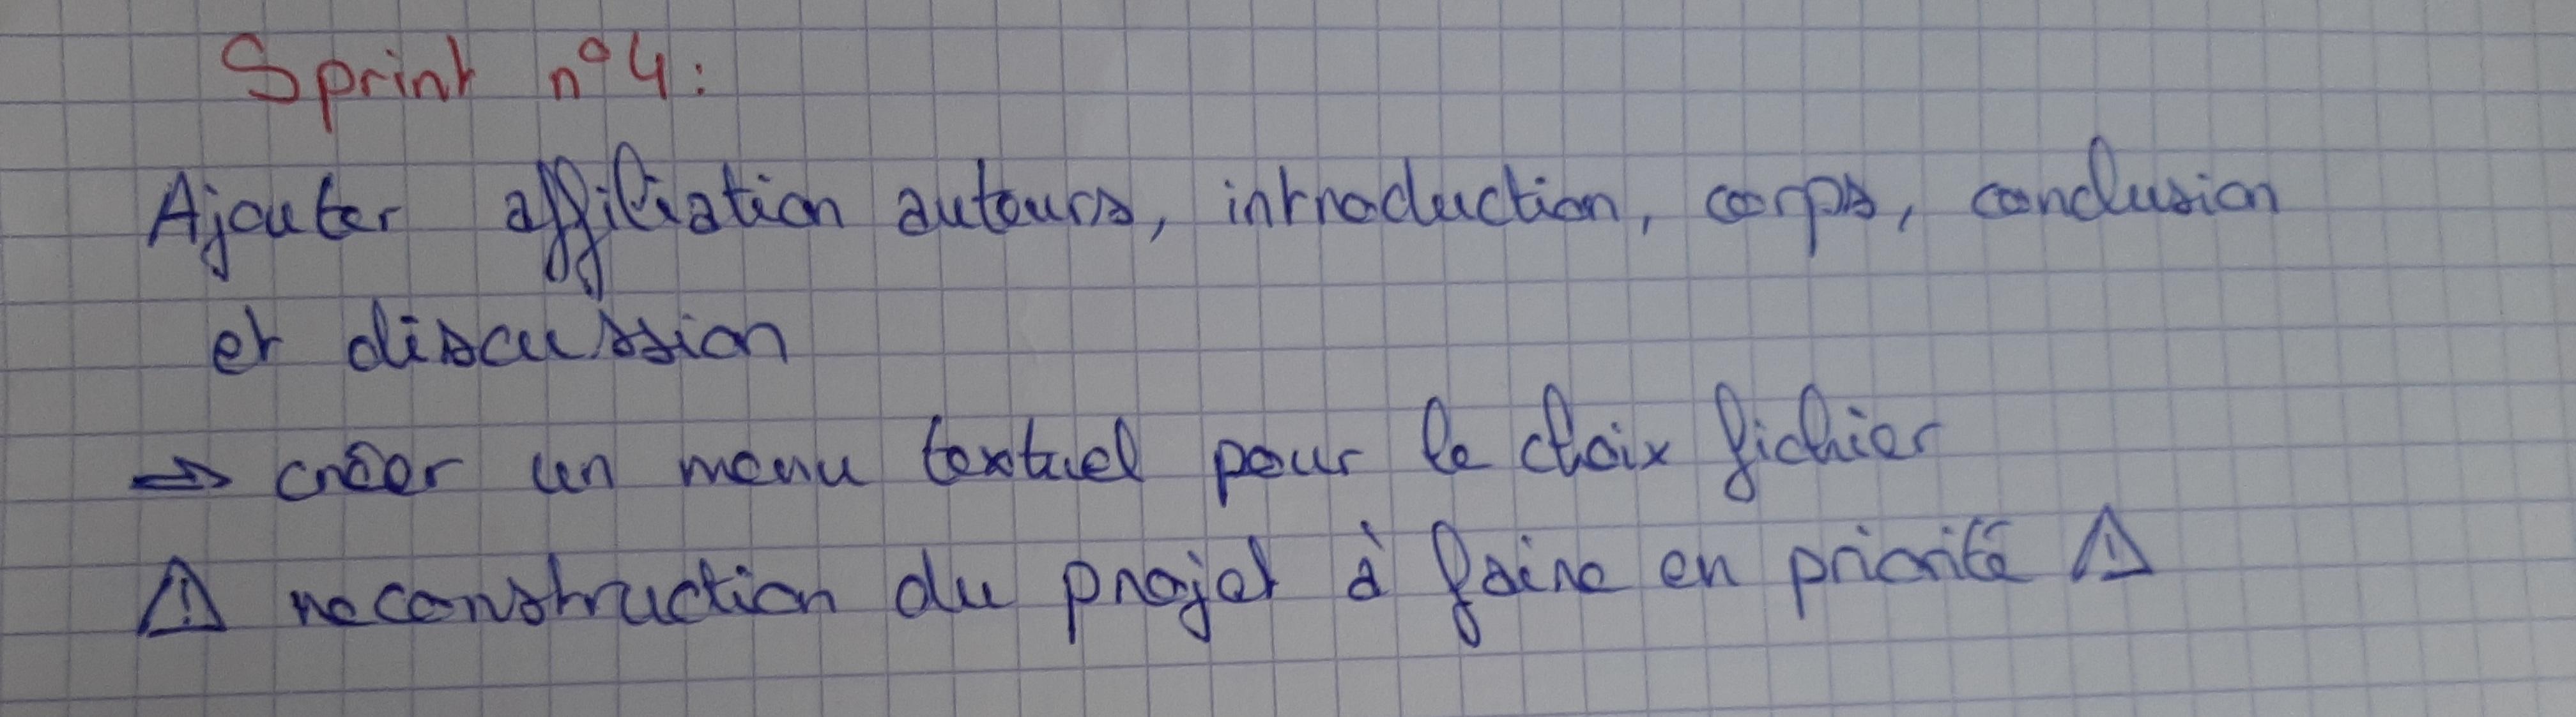 Sprint n°4 :
Ajouter affiliation auteurs, introduction, corps, conclusion
et discussion
⇒ créer un menu textuel pour le choix fichier
⚠ reconstruction du projet à faire en priorité ⚠